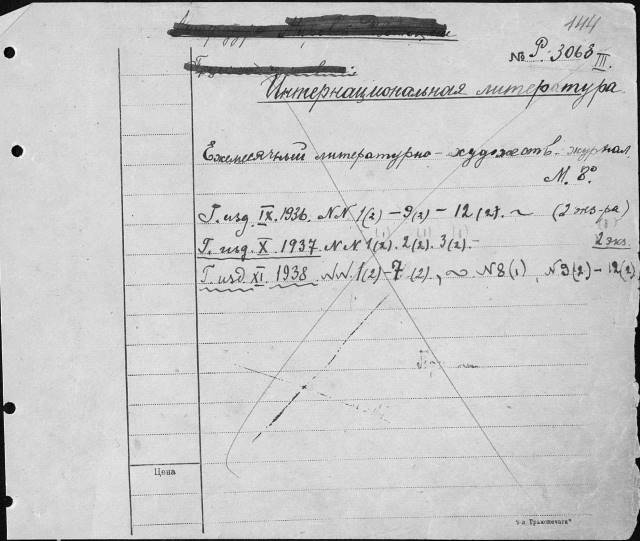 144
№ Р. 3063 III
Интернациональная литература.
Ежемесячный литературно-художеств. журнал.
М. 8°
Г. изд. IX. 1936. NN 1(2) – 9(2) – 12(2). ~ (2 экз-ра)
Г. изд. X. 1937 NN 1(2). 2(2). 3(2). – 2 экз.
Г. изд XI. 1938 NN. 1(2)-7(2), ~ N8(1), N9(2) – 12(2)
Цена